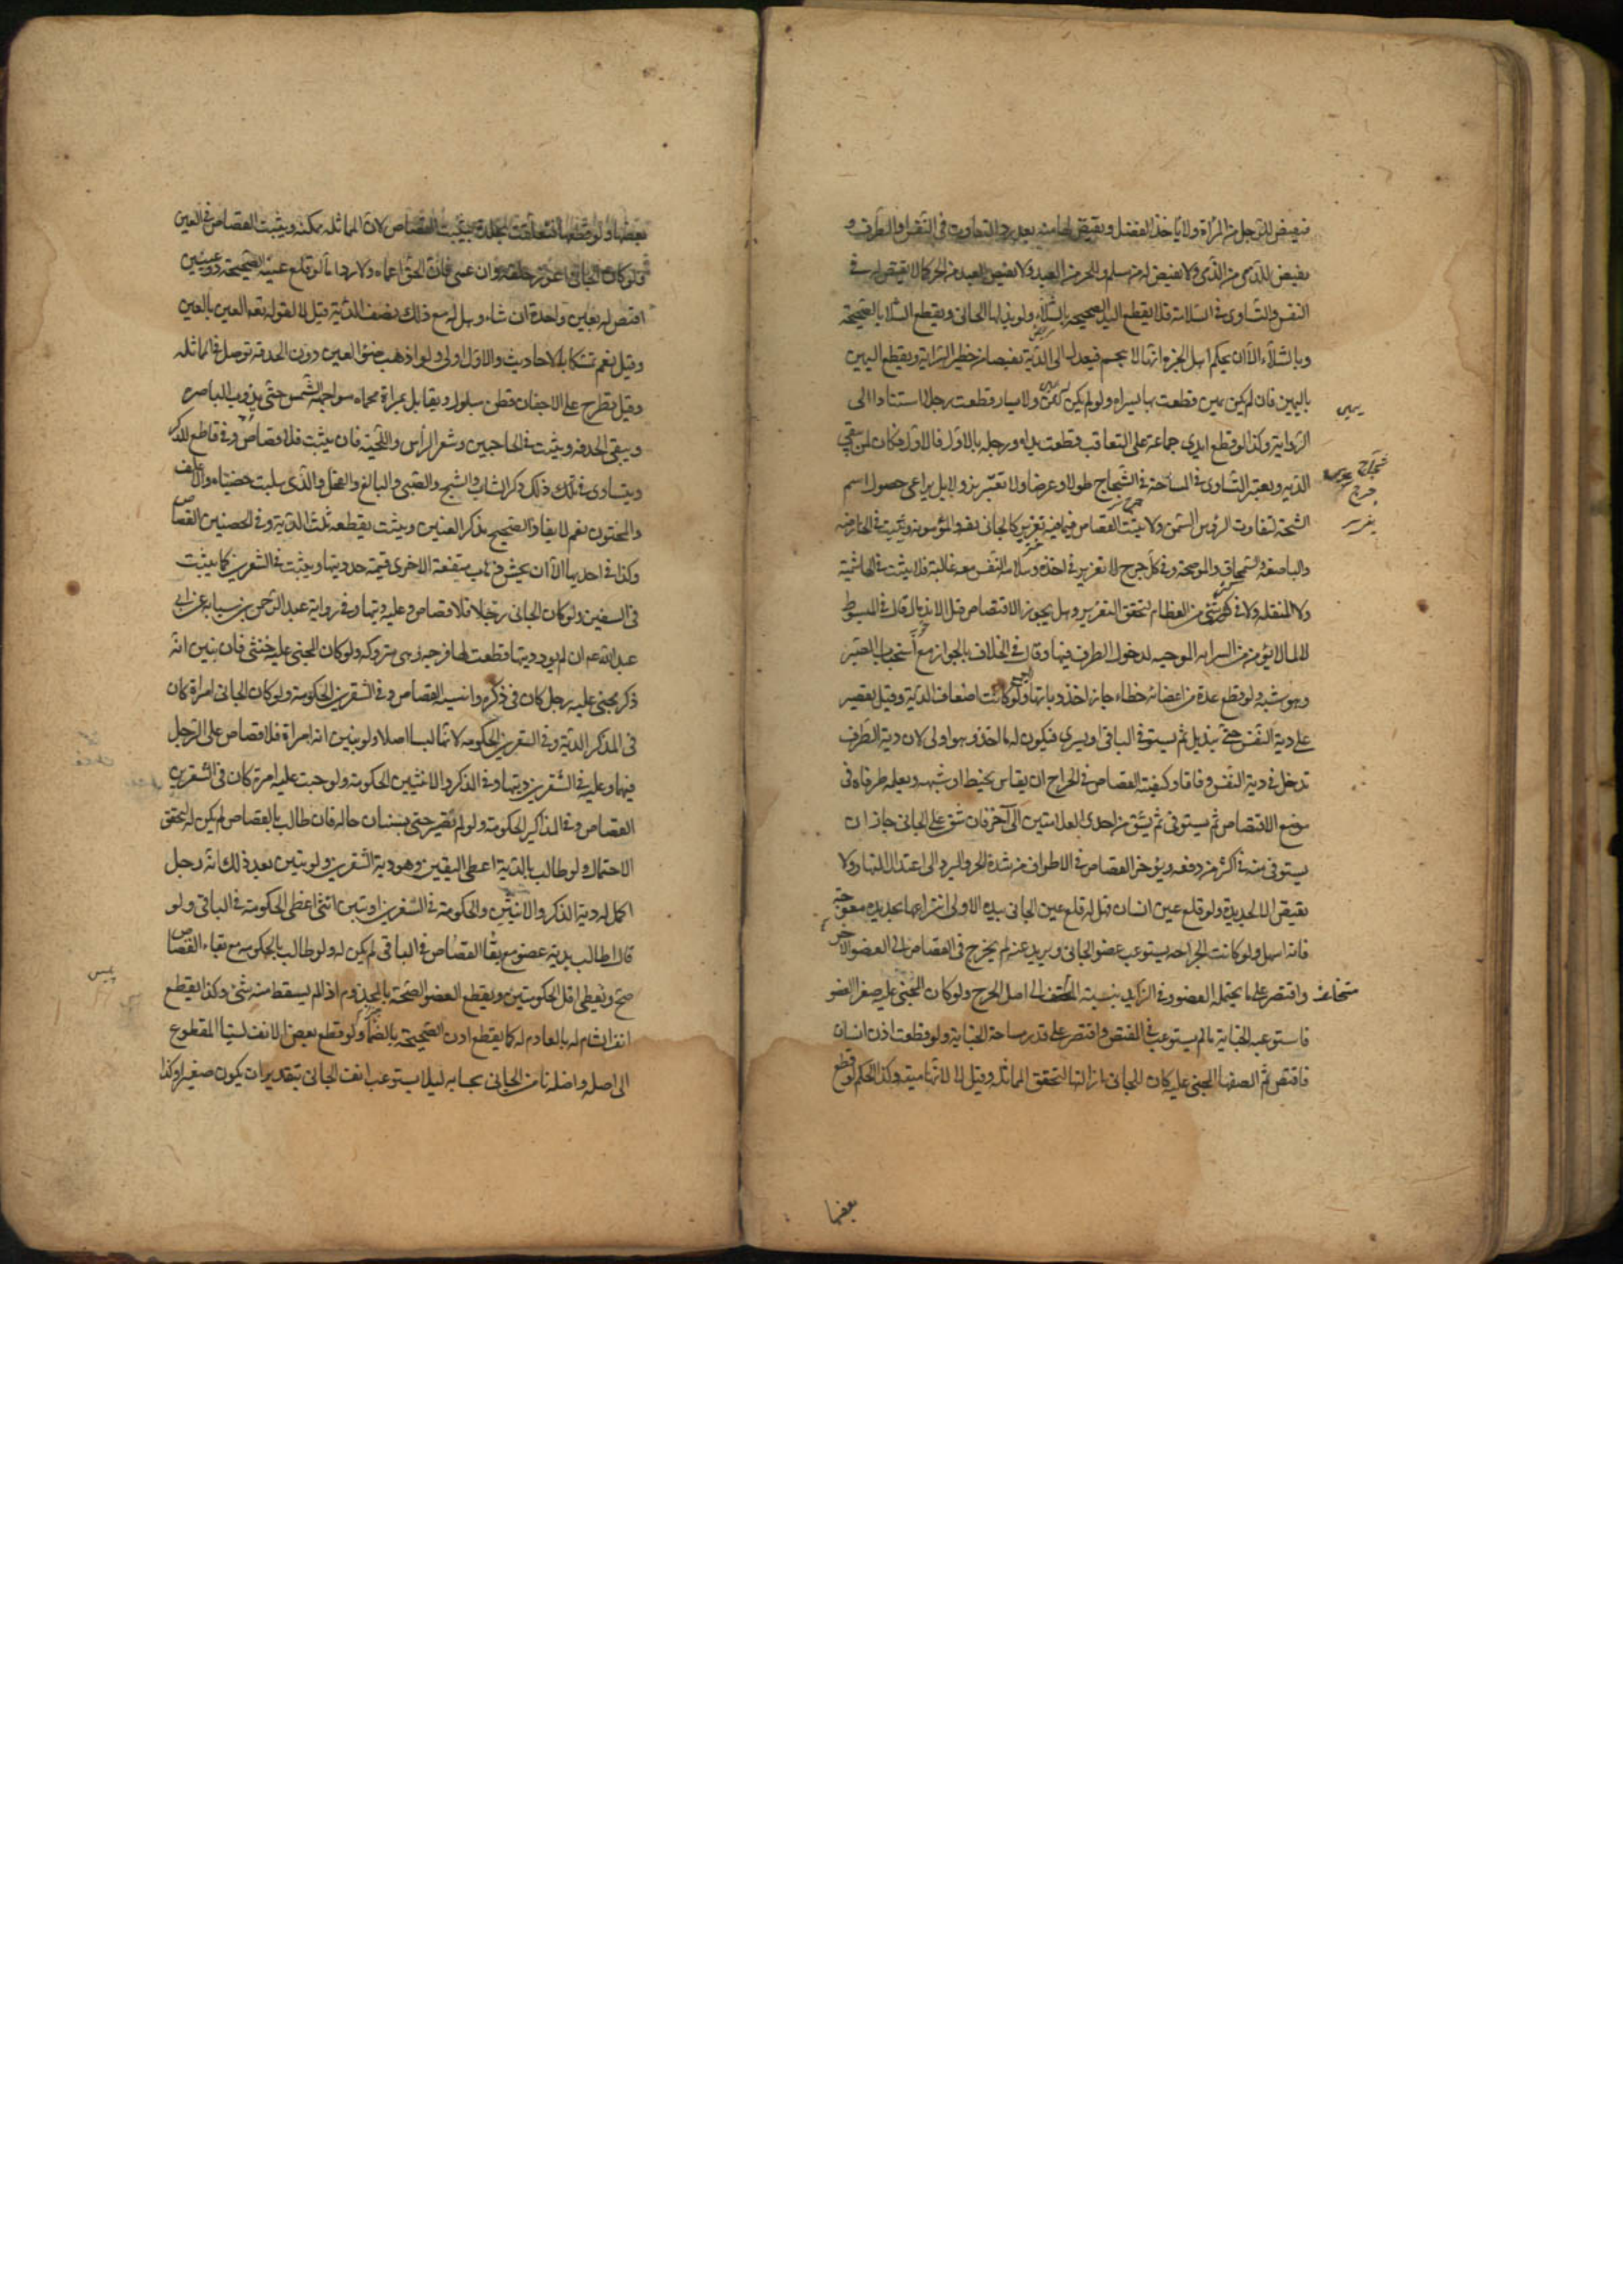 فيقتص للرجل من المرأة ولا يأخذ الفضل ويقتص لها منه بعد رد التفاوت في النفس او الطرف و
يقتص للذمي من الذمي ولا يقتص له من مسلم وللحر من العبد ولا يقتص للعبد من الحر كما لا يقتص له في
النفس والتساوي في السلامة فلا يقطع اليد الصحيحة بالشلاء ولو بذلها الجاني ويقطع الشلا بالصحيحة
وبالشلاء الا ان يحكم اهل الخبرة انها لا يحسم فيعدل الى الدية تفصيا من خطر السراية ويقطع اليمين
باليمين فان لم يكن يمين قطعت بها يسراه ولو لم يكن يمين ولا يسار قطعت رجله استنادا الى
الرواية وكذا لو قطع ايدي جماعة على التعاقب قطعت يداه ورجله بالاول فالاول وكان لمن بقي
الدية ويعتبر التساوي في المساحة في الشجاج طولا وعرضا ولا يعتبر نزولا بل يراعى حصول اسم
الشجة لتفاوت الرؤس في السمن ولا يثبت القصاص فيما فيه تغرير كالجائفة والمأمومة ويثبت في الحارصة
والباضعة والسمحاق والموضحة وفي كل جرح لا تغرير في اخذه وسلامة النفس معه غالبة فلا يثبت في الهاشمة
ولا المنقلة ولا في كسر شئ من العظام لتحقق التغرير وهل يجوز الاقتصاص قبل الاندمال قال في المبسوط
لا لما لا يؤمن من السراية الموجبة لدخول الطرف فيها وقال في الخلاف بالجواز مع استحباب الصبر
وهو اشبه ولو قطع عدة من اعضائه خطاء جاز اخذ دياتها ولو كانت اضعاف الدية وقيل يقتصر
على دية النفس حتى يندمل ثم يستوفي الباقي او يسري فيكون له ما اخذ وهو اولى لان دية الطرف
تدخل في دية النفس وفاقا وكيفية القصاص في الجراح ان يقاس بخيط او شبهه ويعلم طرفاه في
موضع الاقتصاص ثم يستوفى ثم يشق من احدى العلامتين الى الاخرى فان شق على الجاني جاز ان
يستوفى منه في اكثر من دفعة ويؤخر القصاص في الاطراف من شدة الحر والبرد الى اعتدال النهار ولا
يقتص الا بحديدة ولو قلع عين انسان فهل له قلع عين الجاني بيده الاولى انتزاعها بحديدة معوجة
فانه اسهل ولو كانت الجراحة يستوعب عضو الجاني ويزيد عنه لم يخرج في القصاص الى العضو الاخر
واقتصر على ما يحتمله العضو وفي الزايد بنسبة المتخلف الى اصل الجرح ولو كان المجني عليه صغير العضو
فاستوعبه الجناية لم يستوعب في المقتص واقتصر على قدر مساحة الجناية ولو قطعت اذن انسان
فاقتص ثم الصقها المجني عليه كان للجاني ازالتها لتحقق المماثلة وقيل لا لانها ميتة وكذا الحكم لو قطع
يمين
شجاج
جرح
تغرير
متخلف
بعضها
بعضها ولو قطعها فتعلقت بجلدة يثبت القصاص لان المماثلة ممكنة ويثبت القصاص في العين
ولو كان الجاني اعور خلقة وان عمي فان الحق اعماه ولا رد اما لو قلع عينه الصحيحة ذو عينين
اقتص له بعين واحدة ان شاء وهل له مع ذلك نصف الدية قيل لا لقوله تعالى العين بالعين
وقيل نعم تمسكا بالاحاديث والاول اولى ولو اذهب ضوء العين دون الحدقة توصل في المماثلة
وقيل يطرح على الاجفان قطن مبلول ويقابل بمرآة محماة مواجهة الشمس حتى يذوب الباصرة
ويبقى الحدقة ويثبت في الحاجبين وشعر الراس واللحية فان نبت فلا قصاص وفي قاطع الذكر
ويتساوى في ذلك ذكر الشاب والشيخ والصبي والبالغ والفحل والذي سلبت خصيتاه والاغلف
والمختون نعم لا يقاد الصحيح بذكر العنين ويثبت بقطعه ثلث الدية وفي الخصيتين القصاص
وكذا في احديهما الا ان يخشى ذهاب منفعة الاخرى فيتمه حد ديتها ويثبت في الشفرين كما يثبت
في الشفتين ولو كان الجاني رجلا فلا قصاص وعليه ديتها وفي رواية عبد الرحمن بن سيابة عن ابي
عبد الله عم ان لم يود ديتها قطعت لها فرجه وهي متروكة ولو كان المجني عليه خنثى فان تبين انه
ذكر مجني عليه رجل كان في ذكره وانثييه القصاص وفي الشفرين الحكومة ولو كان الجاني امراة كان
في المذاكر الدية وفي الشفرين الحكومة لانهما ليسا اصلا ولو تبين انه امراة فلا قصاص على الرجل
فيهما وعليه في الشفرين ديتهما وفي الذكر والانثيين الحكومة ولو جنت عليه امرة كان في الشفرين
القصاص وفي المذاكير الحكومة ولو لم يصبر حتى يستبان حاله فان طالب بالقصاص لم يكن له لتحقق
الاحتمال ولو طالب بالدية اعطى اليقين وهو دية الشفرين ولو تبين بعد ذلك انه رجل
اكمل له دية الذكر والانثيين والحكومة في الشفرين او تبين انثى اعطي الحكومة في الباقي ولو
قال اطالب بدية عضو مع بقاء القصاص في الباقي لم يكن له ولو طالب بالحكومة مع بقاء القصاص
صح ويعطى اقل الحكومتين ويقطع العضو الصحيح بالمجذوم اذا لم يسقط منه شئ وكذا يقطع
انف الشام له بالعادم له كما يقطع اذن الصحيحة بالصماء ولو قطع بعض الانف نسبنا المقطوع
الى اصله واخذنا من الجاني بحسابه ليلا يستوعب انف الجاني بتقدير ان يكون صغيرا وكذا